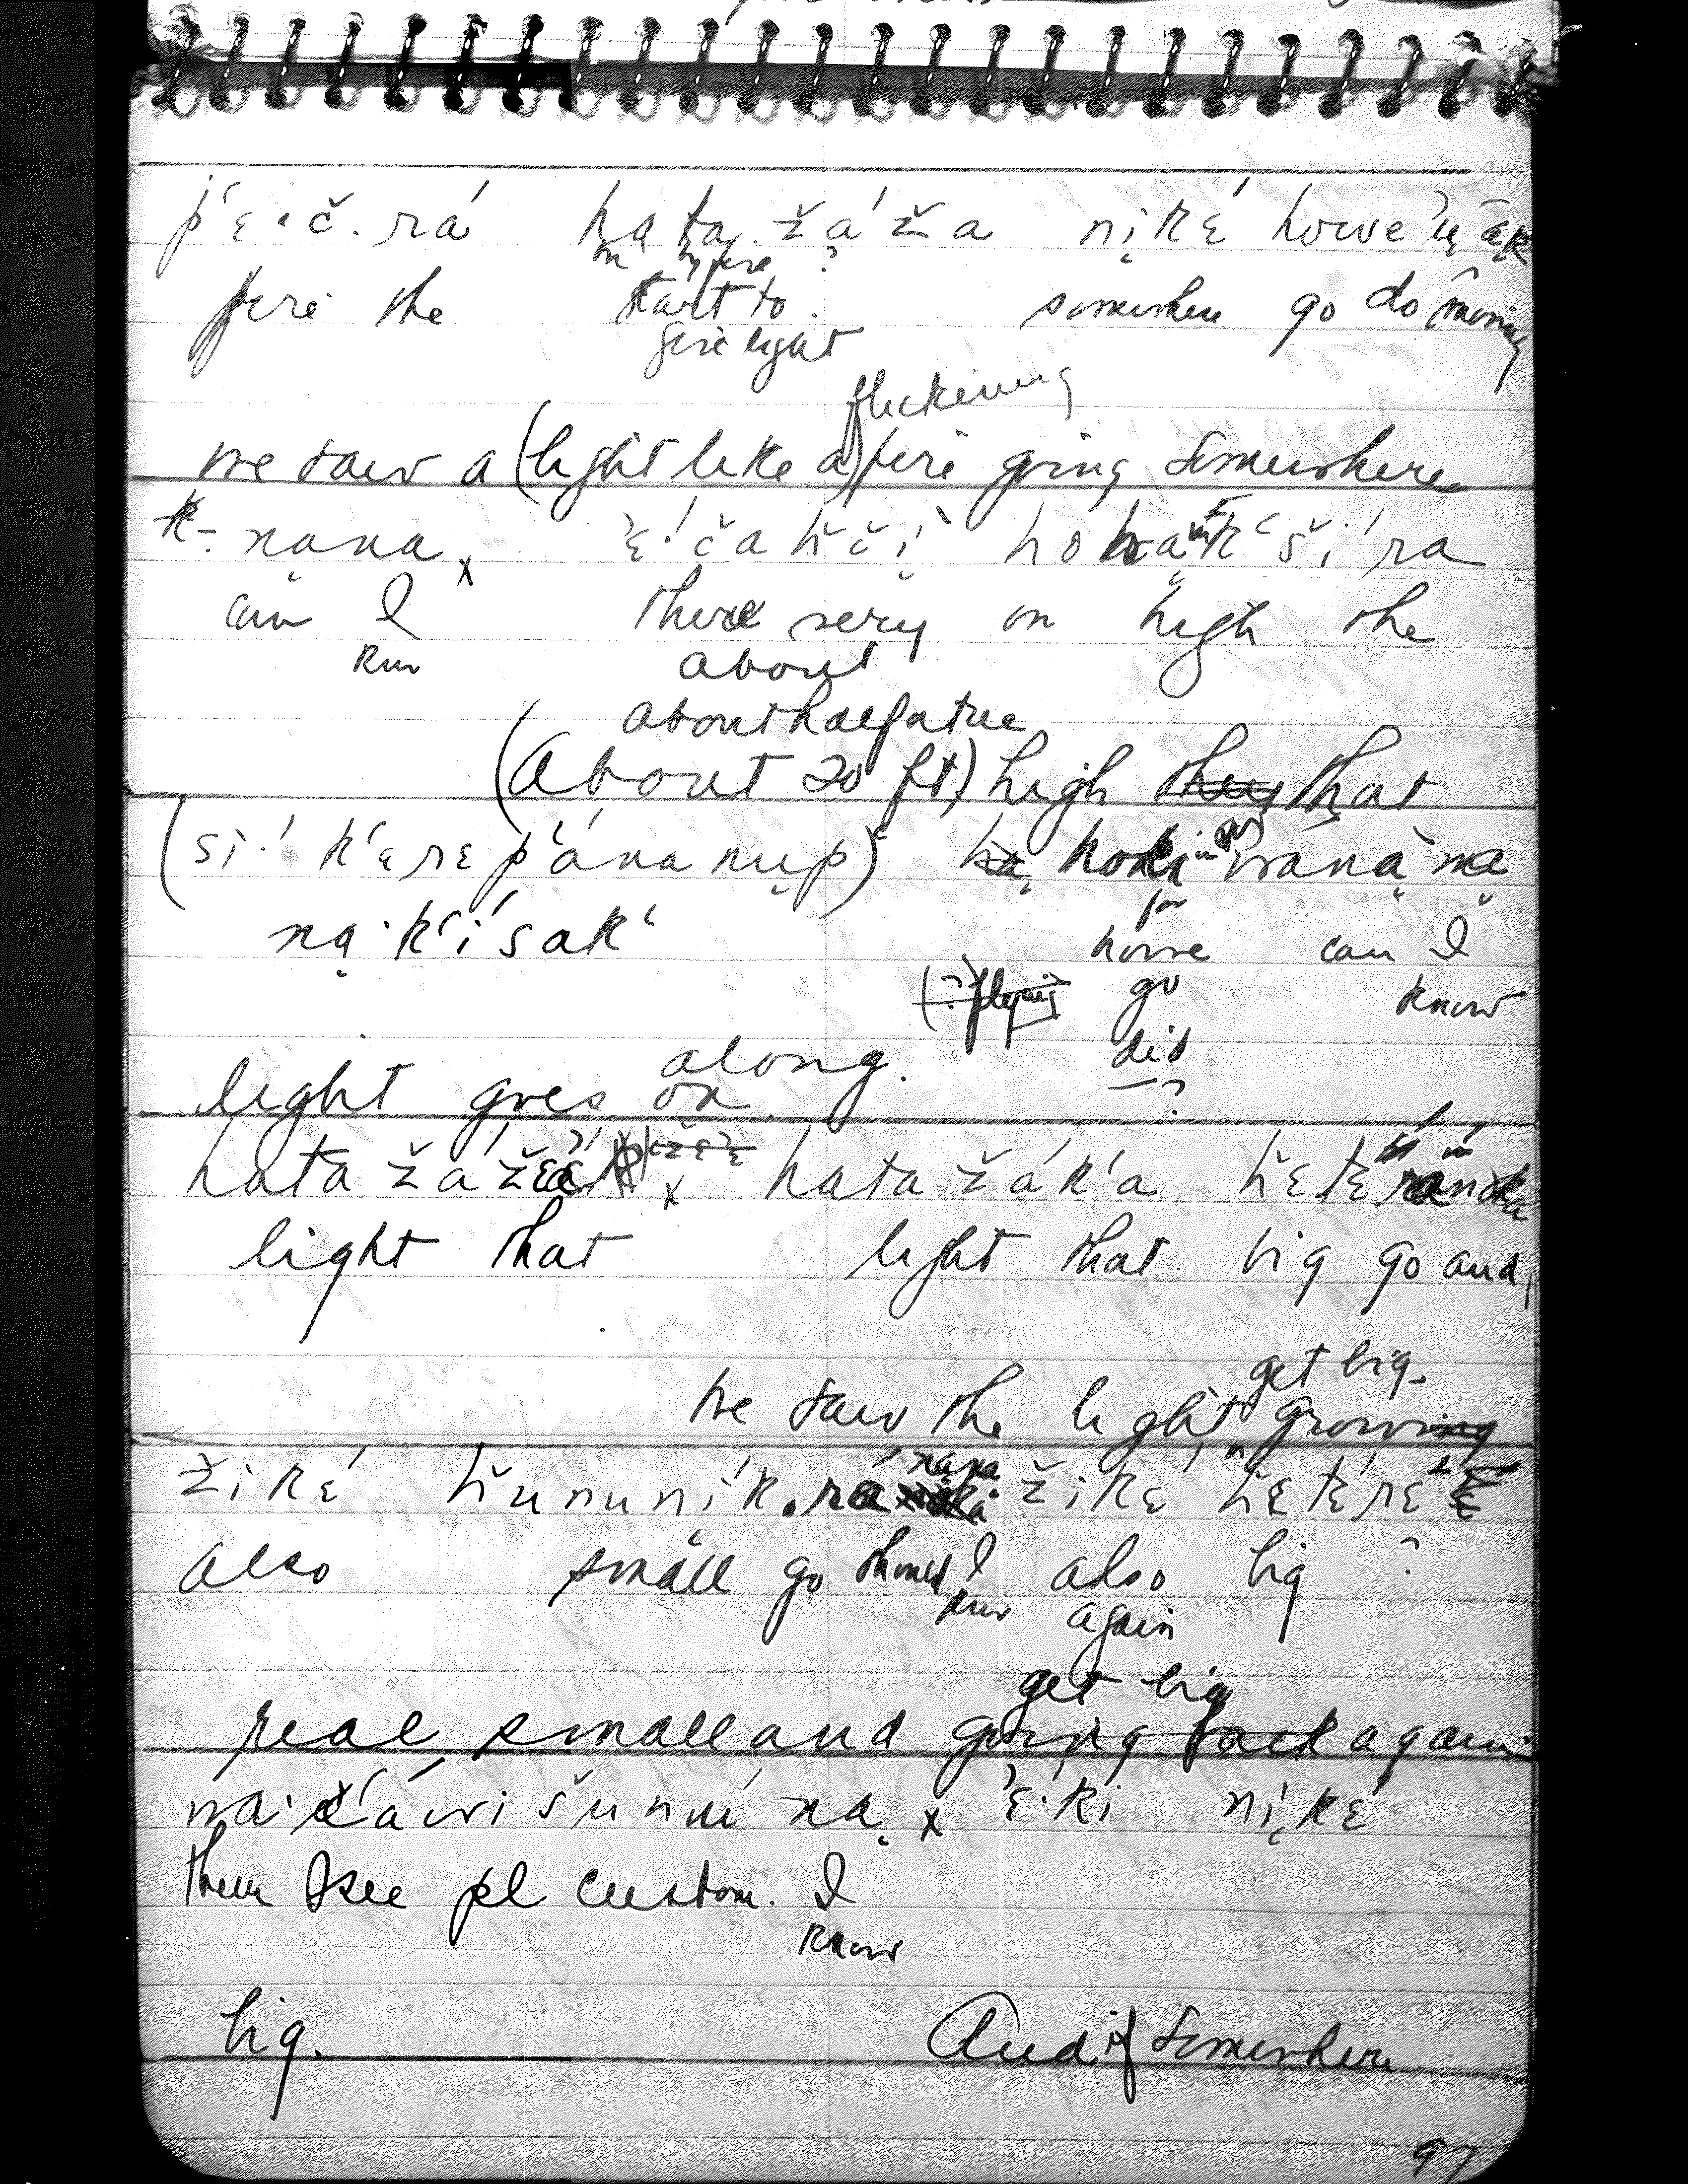 p'ɛ·č.rá hata.žáža nįkɛ́ howe'ų ąk
on by fire ?
fire the start to. somewhere go do moving
fire light
flickering
we saw a (light like a) fire going somewhere
nąna x ɛ·́čahčį hoką́k'ší·ra
can I there very on high the
know about
about half a tree
(about 20 ft) high they that
(si·́ k'ɛrɛp'ána nųp) hoki wáną ną
ną·k'ísak' for
home can I
(? flying) go know
did
along. ?
light goes on
hatažáž x hatažák'a hɛtɛ́
light that light that. big go and
get big.
we saw the light growing
žikɛ́ hununį́k. nąna žikɛ́ hɛtɛ́rɛ
also small go should I also big ?
know again
get big
real small and going back again
wa·č'áwi šunú ną x 'ɛ·́ki nįkɛ́
them I see pl custom. I
know
big. And if somewhere
97